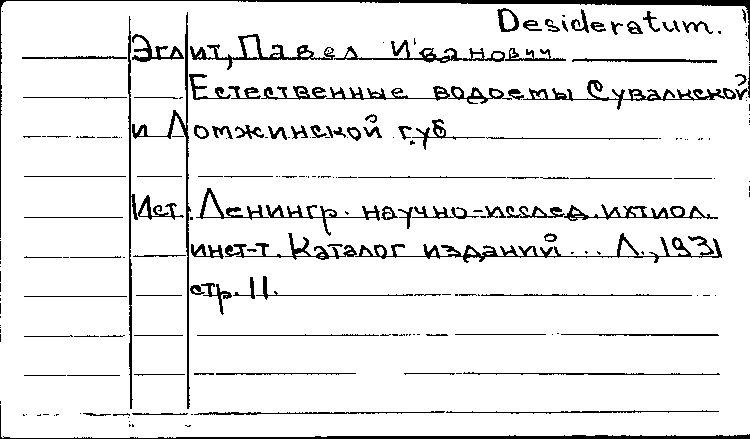 Desideratum.
Эглит, Павел Иванович
Естественные водоемы Сувалкской
и Ломжинской губ.
Ист.: Ленингр. научно-исслед. ихтиол.
инст-т. Каталог изданий... Л., 1931
стр. 11.